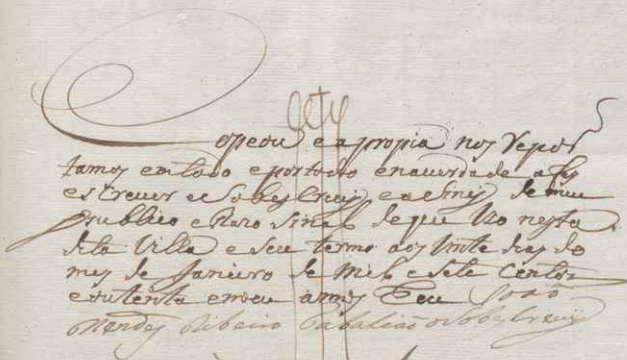 Copeou e apropia nos Repor
tamos emtodo eportodo enaverdade afis
escrever esobescrevij easinej de meu
publico eRazo Sinal de que Uzo nesta
dita Villa eseu termo aos Vinte dias do
mes de Janeiro de Mil esete Centos
eoutenta enove annos Eu João
Mendes Ribeiro Tabalião osobescrevij